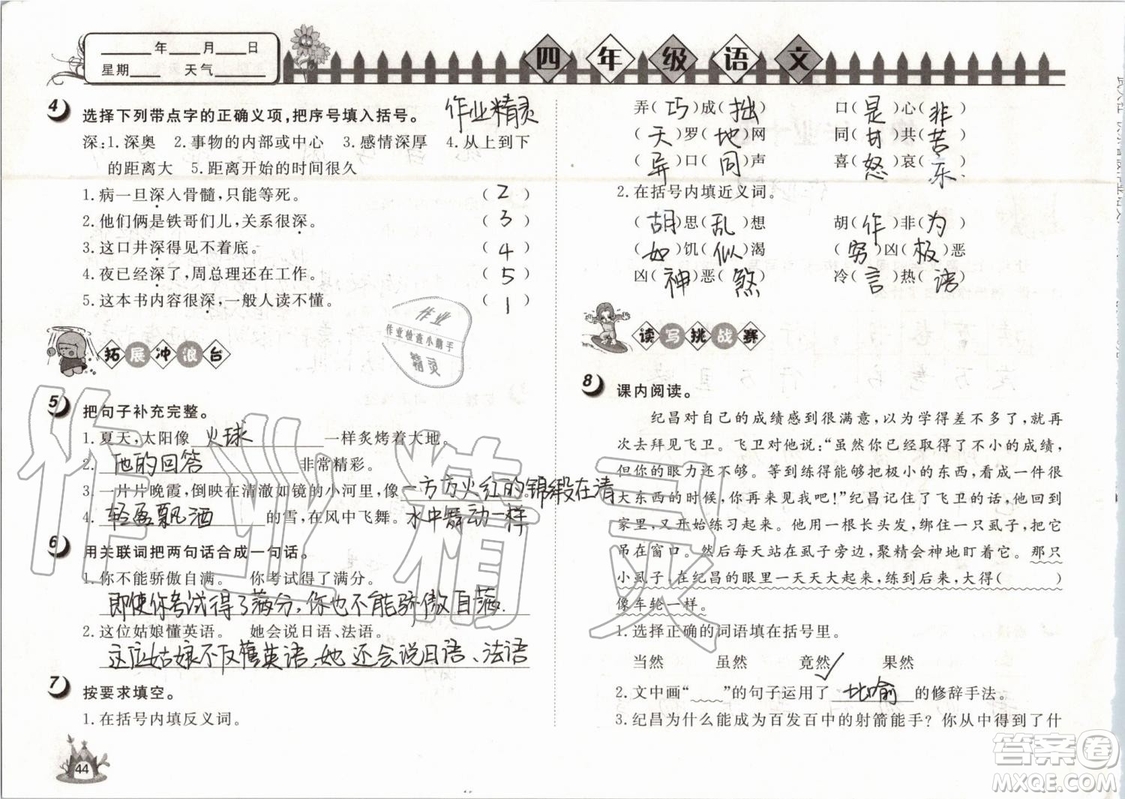 ____年____月____日
星期______ 天气______
四年级语文
4 选择下列带点字的正确义项,把序号填入括号。 作业精灵
深:1.深奥 2.事物的内部或中心 3.感情深厚 4.从上到下
的距离大 5.距离开始的时间很久
1.病一旦深入骨髓,只能等死。 ( 2 )
2.他们俩是铁哥们儿,关系很深。 ( 3 )
3.这口井深得见不着底。 ( 4 )
4.夜已经深了,周总理还在工作。 ( 5 )
5.这本书内容很深,一般人读不懂。 ( 1 )
作业
作业检查小助手
精灵
拓展冲浪台
5 把句子补充完整。
1.夏天,太阳像 火球 一样炙烤着大地。
2. 他的回答 非常精彩。
3.一片片晚霞,倒映在清澈如镜的小河里,像一方方火红的锦缎在清
4. 轻盈飘洒 的雪,在风中飞舞。 水中舞动一样
6 用关联词把两句话合成一句话。
1.你不能骄傲自满。 你考试得了满分。
即使你考试得了满分,你也不能骄傲自满.
2.这位姑娘懂英语。 她会说日语、法语。
这位姑娘不仅懂英语,她还会说日语、法语
7 按要求填空。
1.在括号内填反义词。
44
弄( 巧 )成( 拙 ) 口( 是 )心( 非 )
( 天 )罗( 地 )网 同( 甘 )共( 苦 )
( 异 )口( 同 )声 喜( 怒 )哀( 乐 )
2.在括号内填近义词。
( 胡 )思( 乱 )想 胡( 作 )非( 为 )
( 如 )饥( 似 )渴 ( 穷 )凶( 极 )恶
凶( 神 )恶( 煞 ) 冷( 言 )热( 语 )
读写挑战赛
8 课内阅读。
纪昌对自己的成绩感到很满意,以为学得差不多了,就再
次去拜见飞卫。飞卫对他说:“虽然你已经取得了不小的成绩,
但你的眼力还不够。等到练得能把极小的东西,看成一件很
大的东西的时候,你再来见我吧!”纪昌记住了飞卫的话,回到
家里,又开始练习起来。他用一根长头发,绑住一只虱子,把它
吊在窗口。然后每天站在虱子旁边,聚精会神地盯着它。那只
小虱子,在纪昌的眼里一天天大起来,练到后来,大得( )
像车轮一样。
1.选择正确的词语填在括号里。
当然 虽然 竟然√ 果然
2.文中画“﹏﹏”的句子运用了 比喻 的修辞手法。
3.纪昌为什么能成为百发百中的射箭能手?你从中得到了什
作业精灵
答案圈
MXQE.COM